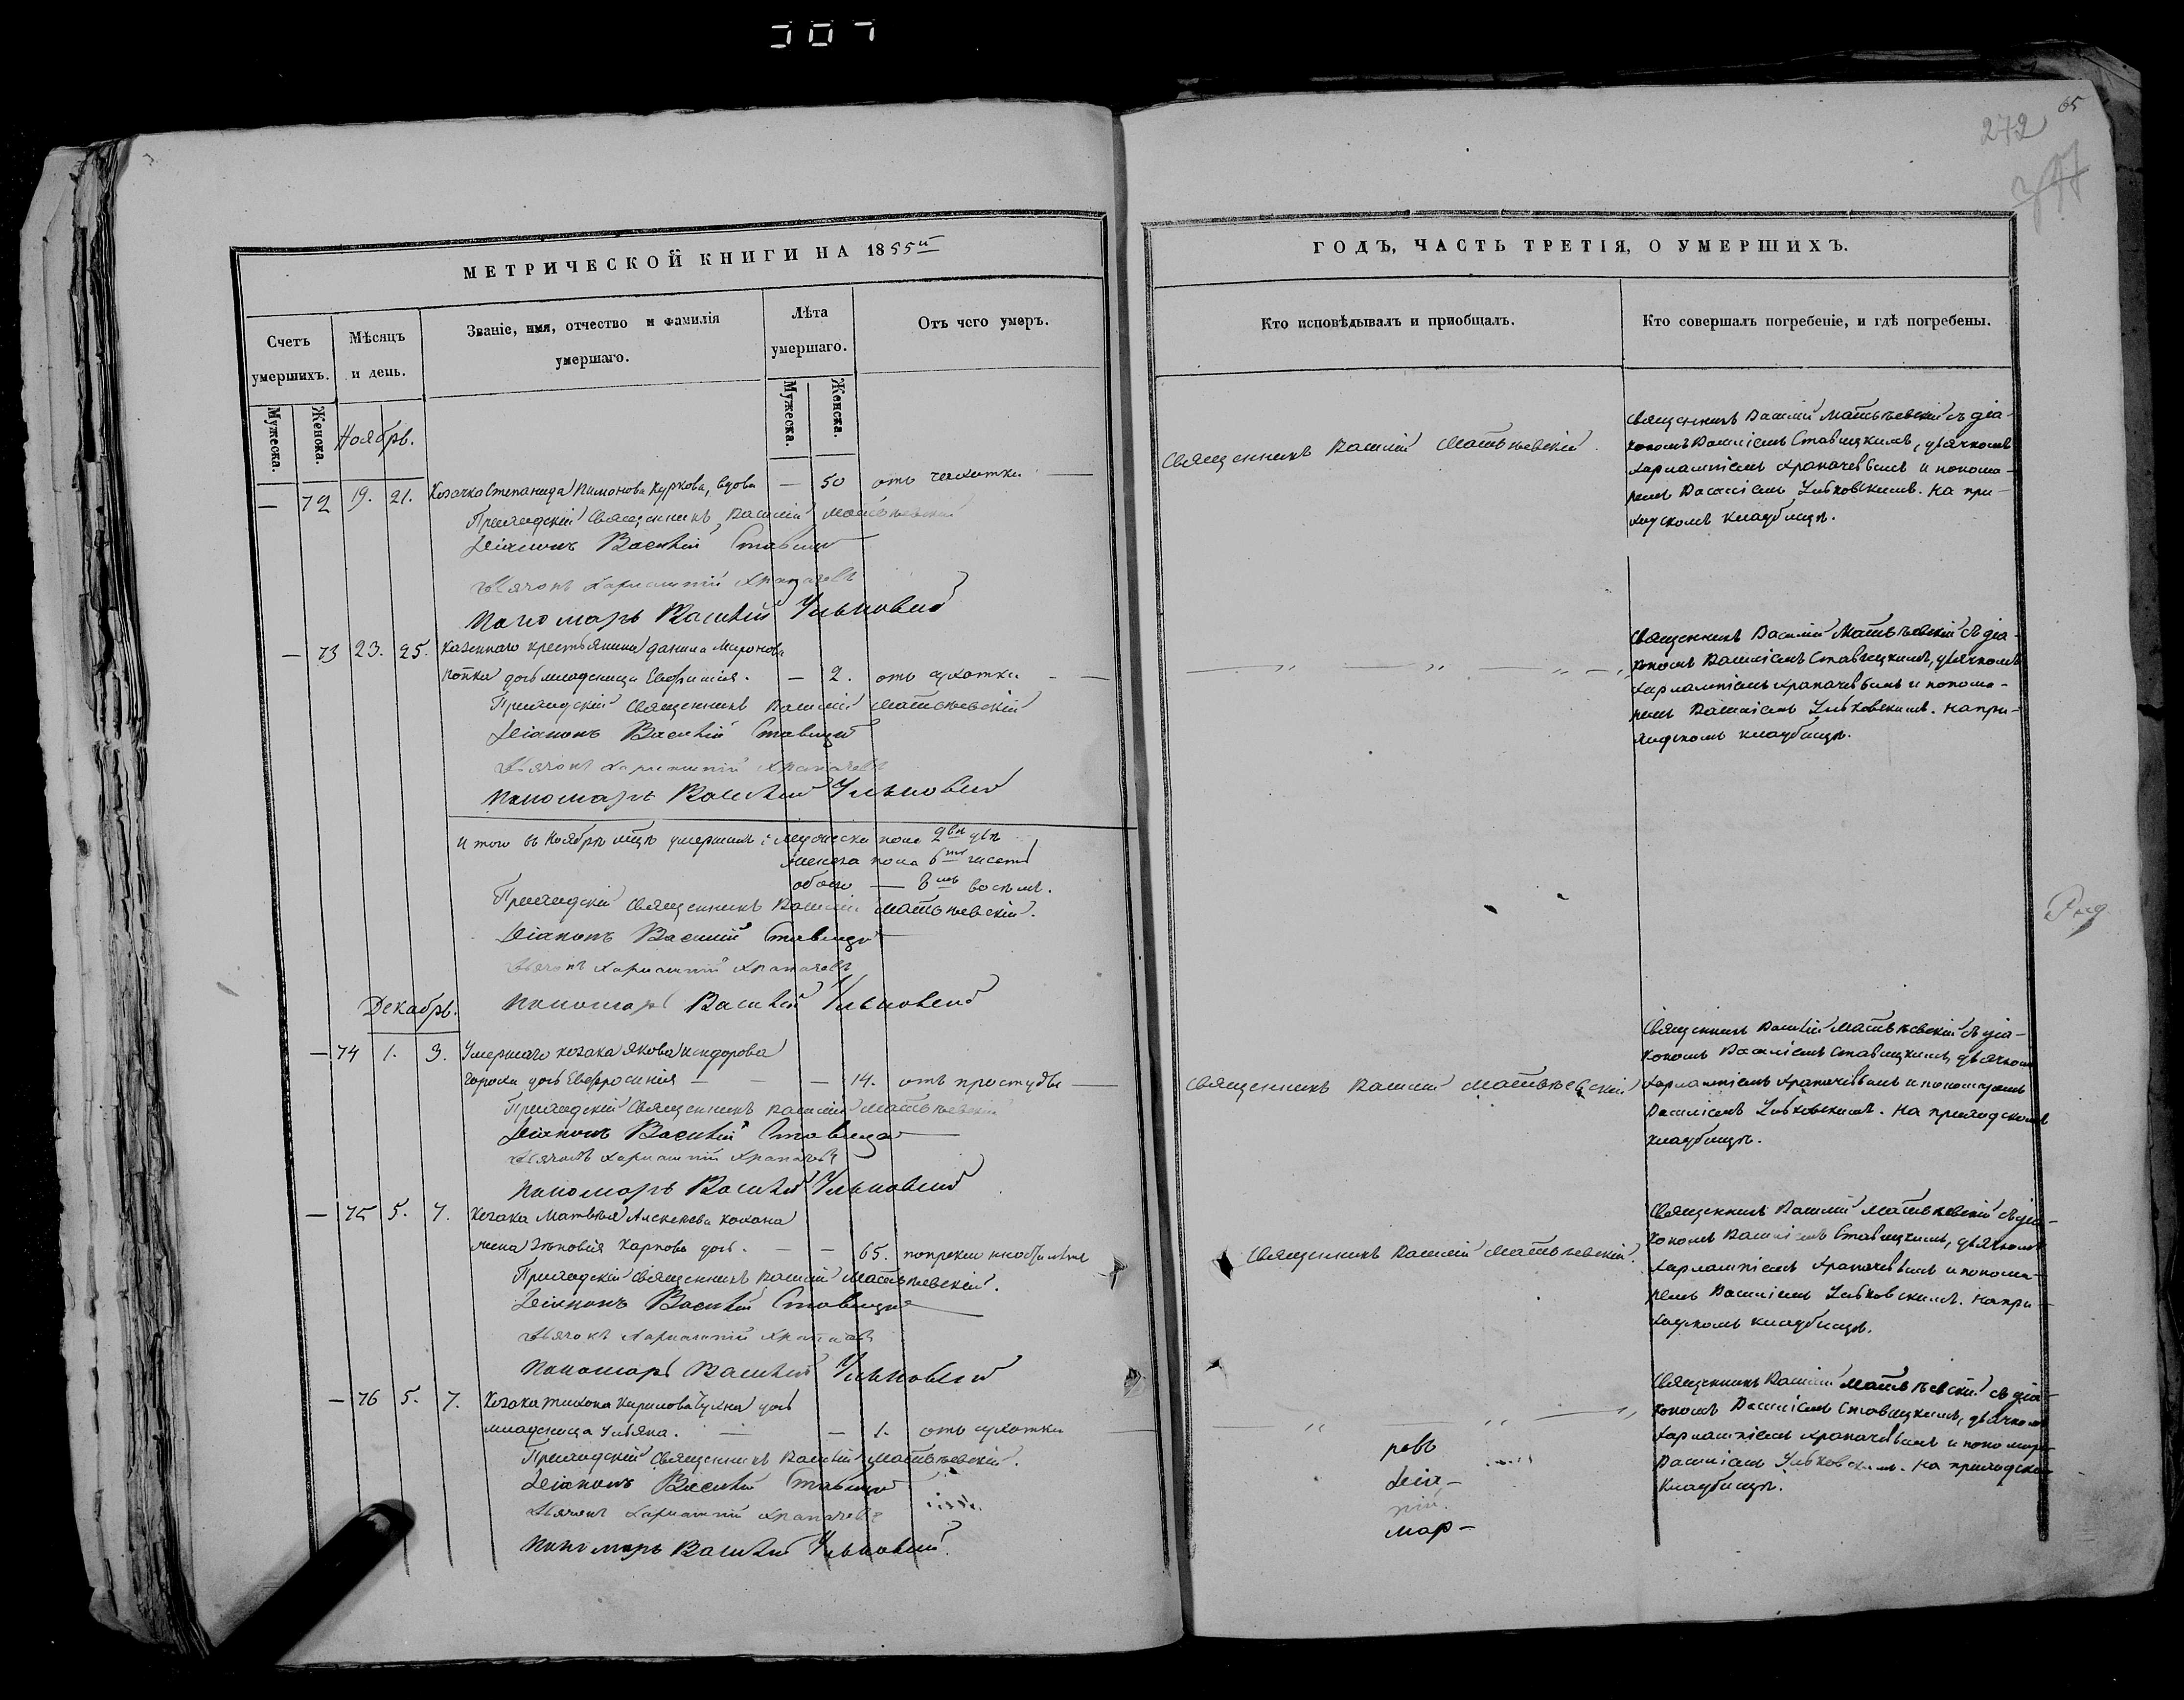 307
МЕТРИЧЕСКОЙ КНИГИ НА 1855й
Счетъ умершихъ.
Мѣсяцъ и день.
Званіе, имя, отчество и фамилія умершаго.
Лѣта умершаго.
Отъ чего умеръ.
Мужеска.
Женска.
Мужеска.
Женска.
Ноябрь.
— 72 19. 21. Козачка Степанида Пимонова Куркова, вдова — 50 отъ чахотки
Приходскій Священникъ Василій Матвѣевскій
Діаконъ Василій Ставицкій
Дьячокъ Харлампій Храпачевъ
Пономарь Василій Ульковскій
— 73 23. 25. Казеннаго крестьянина Данила Миронова
дочь младенца Евфимія. — 2. отъ сухотки
Приходскій Священникъ Василій Матвѣевскій
Діаконъ Василій Ставицкій
Дьячокъ Харлампій Храпачевъ
Пономарь Василій Ульковскій
Итого въ Ноябрѣ мцѣ умершихъ: мужеска пола 2ва два
женска пола 6ть шесть
обоего — 8мь восемь.
Приходскій Священникъ Василій Матвѣевскій.
Діаконъ Василій Ставицкій
Дьячокъ Харлампій Храпачевъ
Пономарь Василій Ульковскій
Декабрь.
— 74 1. 3. Умершаго козака Якова Исидорова
дочь Евфросинія — 14. отъ простуды
Приходскій Священникъ Василій Матвѣевскій
Діаконъ Василій Ставицкій
Дьячокъ Харлампій Храпачевъ
Пономарь Василій Ульковскій
— 75 5. 7. Козака Матвѣя Алексѣева
жена Зѣновія Карпова дочь. — 65.
Приходскій Священникъ Василій Матвѣевскій.
Діаконъ Василій Ставицкій
Дьячокъ Харлампій Храпачевъ
Пономарь Василій Ульковскій
— 76 5. 7. Козака Тихона Кирилова дочь
младенца Ульяна. — 1. отъ сухотки
Приходскій Священникъ Василій Матвѣевскій.
Діаконъ Василій Ставицкій
Дьячокъ Харлампій Храпачевъ
Пономарь Василій Ульковскій.
65
272
ГОДЪ, ЧАСТЬ ТРЕТІЯ, О УМЕРШИХЪ.
Кто исповѣдывалъ и приобщалъ.
Кто совершалъ погребеніе, и гдѣ погребены.
Священникъ Василій Матвѣевскій.
Священникъ Василій Матвѣевскій съ діа-
кономъ Василіемъ Ставицкимъ, дьячкомъ
Харлампіемъ Храпачевымъ и понома-
ремъ Василіемъ Ульковскимъ. На при-
ходскомъ кладбищѣ.
— „ — „ — „ —
Священникъ Василій Матвѣевскій съ діа-
кономъ Василіемъ Ставицкимъ, дьячкомъ
Харлампіемъ Храпачевымъ и понома-
ремъ Василіемъ Ульковскимъ. На при-
ходскомъ кладбищѣ.
Священникъ Василій Матвѣевскій
Священникъ Василій Матвѣевскій съ діа-
кономъ Василіемъ Ставицкимъ, дьячкомъ
Харлампіемъ Храпачевымъ и пономаремъ
Василіемъ Ульковскимъ. На приходскомъ
кладбищѣ.
Священникъ Василій Матвѣевскій.
Священникъ Василій Матвѣевскій съ діа-
кономъ Василіемъ Ставицкимъ, дьячкомъ
Харлампіемъ Храпачевымъ и понома-
ремъ Василіемъ Ульковскимъ. На при-
ходскомъ кладбищѣ.
„ — „ — „
Священникъ Василій Матвѣевскій съ діа-
кономъ Василіемъ Ставицкимъ, дьячкомъ
Харлампіемъ Храпачевымъ и пономаремъ
Василіемъ Ульковскимъ. На приходскомъ
кладбищѣ.
ревъ
Діа-
пій.
мар-